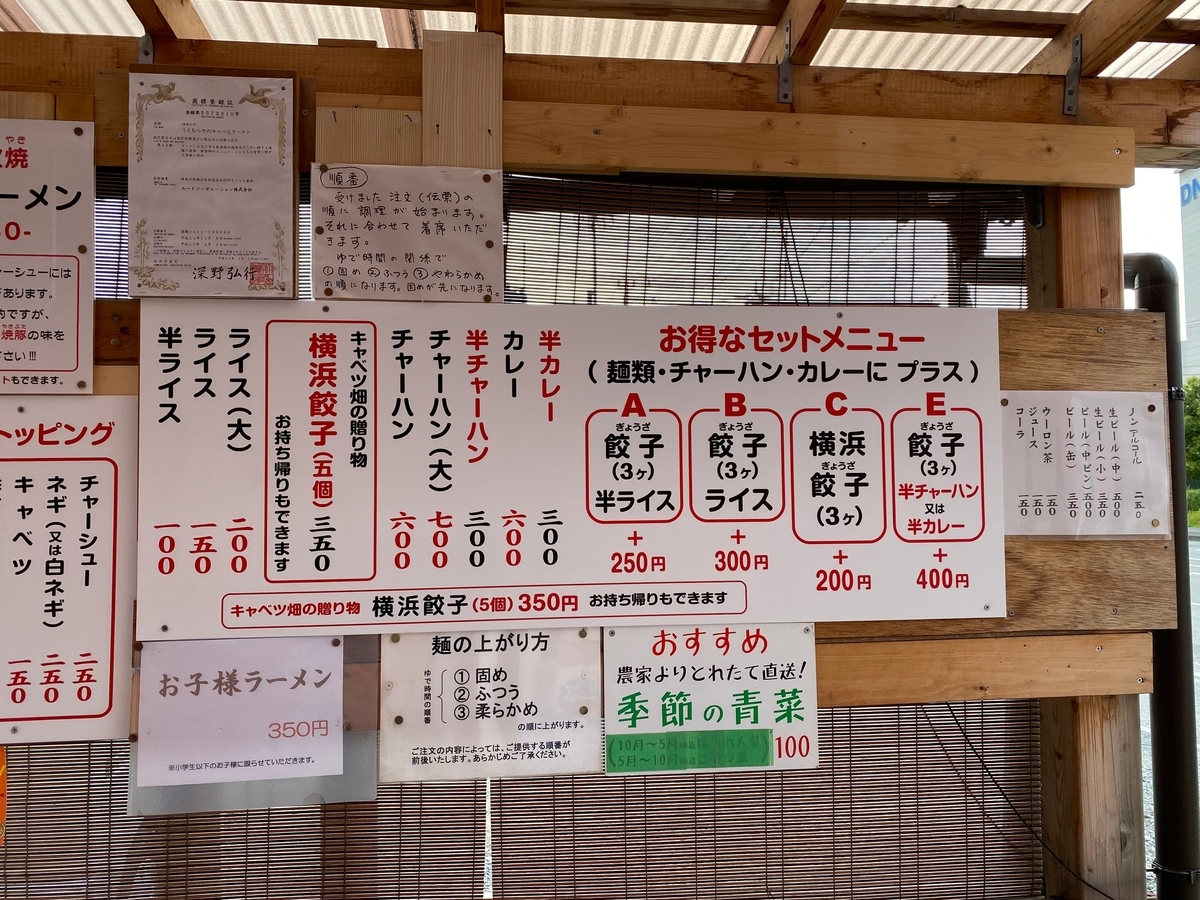 やき
焼
ーメン
ーシューには
があります。
的ですが、
やきぶた
焼豚の味を
さい!!!
トもできます。
商標登録証
深野弘行
順番
受けました注文(伝票)の
順に調理が始まります。
それに合わせて着席いただ
きます。
ゆで時間の関係で
①固め②ふつう③やわらかめ
の順になります。固めが先になります。
トッピング
チャーシュー 二五0
ネギ(又は白ネギ) 二五0
キャベツ 一五0
半カレー 三00
カレー 六00
半チャーハン 三00
チャーハン(大) 七00
チャーハン 六00
キャベツ畑の贈り物
横浜餃子(五個)三五0
お持ち帰りもできます
ライス(大) 二00
ライス 一五0
半ライス 一00
お得なセットメニュー
(麺類・チャーハン・カレーに プラス)
A
ぎょうざ
餃子
(3ヶ)
半ライス
+
250円
B
ぎょうざ
餃子
(3ヶ)
ライス
+
300円
C
横浜
ぎょうざ
餃子
(3ヶ)
+
200円
E
ぎょうざ
餃子
(3ヶ)
半チャーハン
又は
半カレー
+
400円
キャベツ畑の贈り物 横浜餃子(5個)350円 お持ち帰りもできます
ノンアルコール 二五0
生ビール(中) 五00
生ビール(小) 三五0
ビール(中ビン) 五00
ビール(缶) 三五0
ウーロン茶 一五0
ジュース 一五0
コーラ 一五0
お子様ラーメン
350円
※小学生以下のお子様に限らせていただきます。
麺の上がり方
ゆで時間の順番
①固め
②ふつう
③柔らかめ
の順に上がります。
ご注文の内容によっては、ご提供する順番が
前後いたします。あらかじめご了承ください。
おすすめ
農家よりとれたて直送!
季節の青菜
(10月〜5月
5月〜10月
100